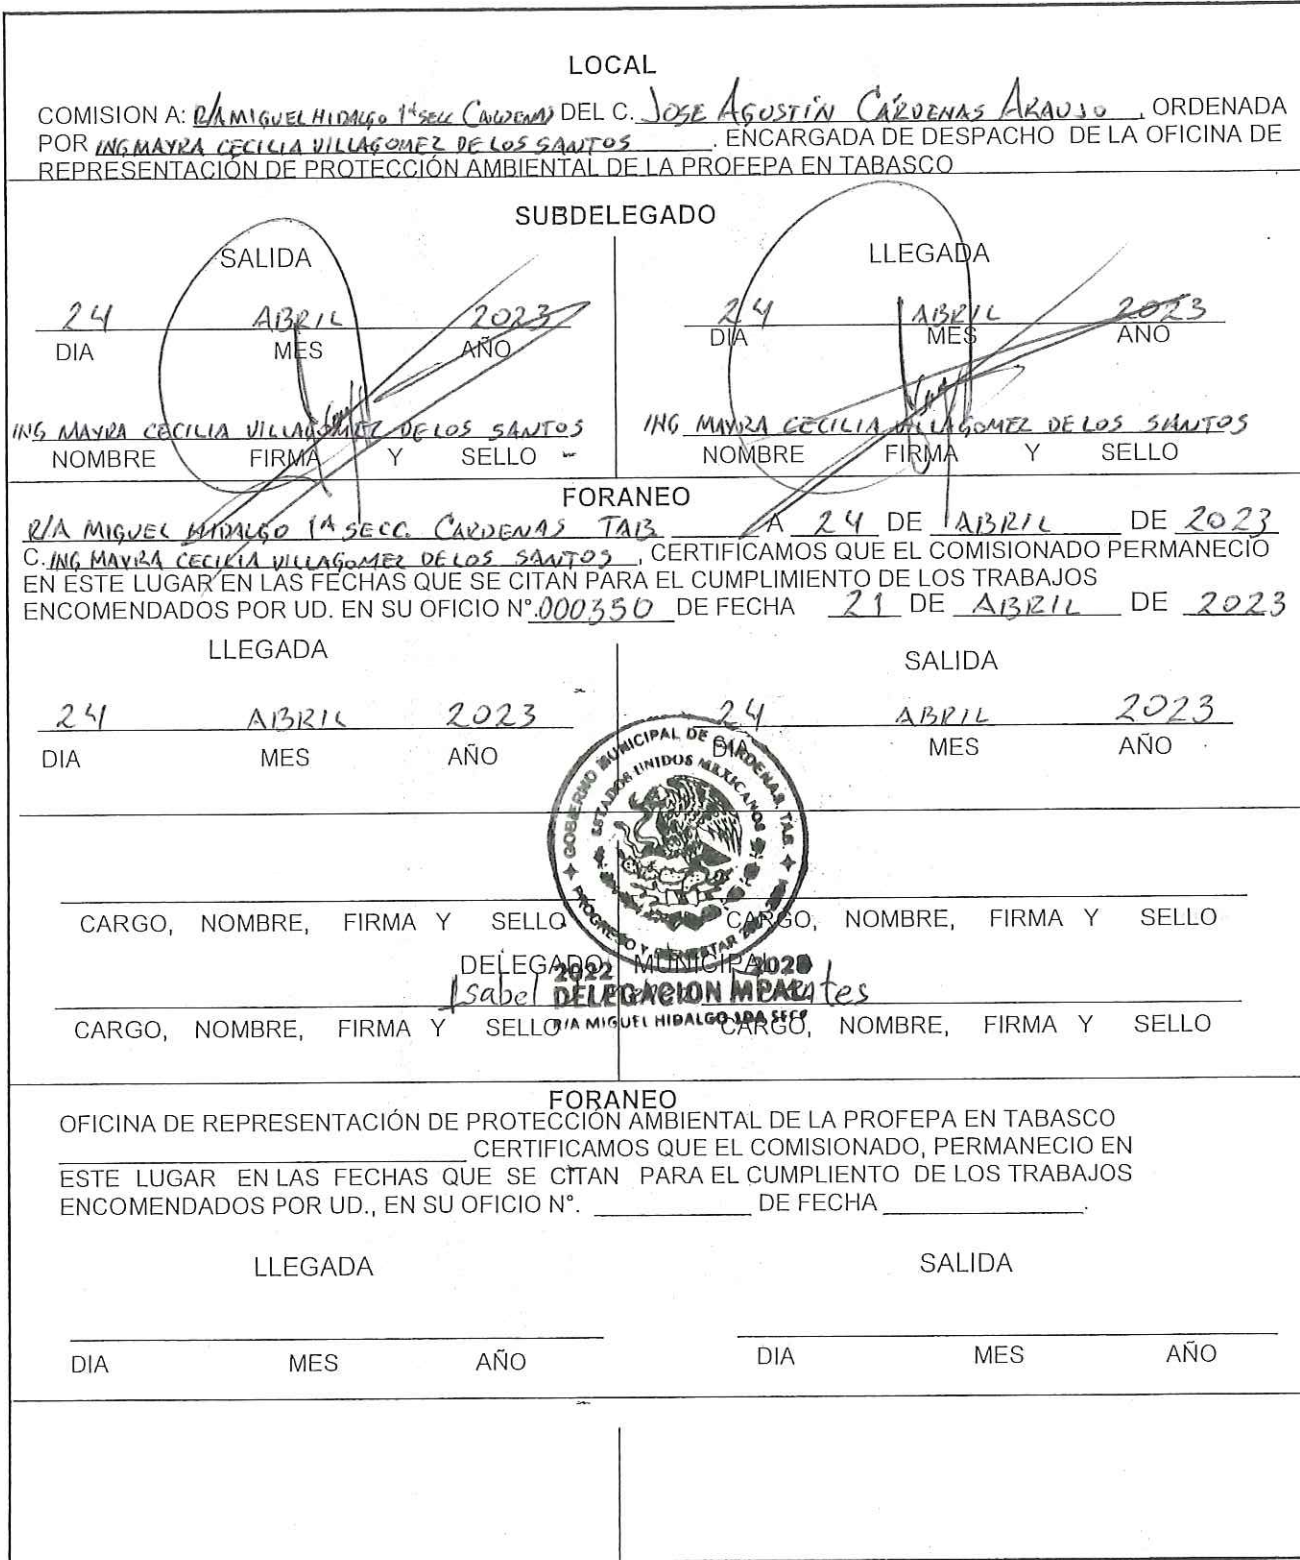 LOCAL
COMISION A: R/A MIGUEL HIDALGO 1ª SECC CARDENAS DEL C. JOSE AGUSTÍN CÁRDENAS ARAUJO, ORDENADA
POR ING MAYRA CECILIA VILLAGOMEZ DE LOS SANTOS. ENCARGADA DE DESPACHO DE LA OFICINA DE
REPRESENTACIÓN DE PROTECCIÓN AMBIENTAL DE LA PROFEPA EN TABASCO
SUBDELEGADO
SALIDA LLEGADA
24 ABRIL 2023 24 ABRIL 2023
DIA MES AÑO DIA MES AÑO
ING MAYRA CECILIA VILLAGOMEZ DE LOS SANTOS ING MAYRA CECILIA VILLAGOMEZ DE LOS SANTOS
NOMBRE FIRMA Y SELLO NOMBRE FIRMA Y SELLO
FORANEO
R/A MIGUEL HIDALGO 1ª SECC. CARDENAS TAB A 24 DE ABRIL DE 2023
C. ING MAYRA CECILIA VILLAGOMEZ DE LOS SANTOS, CERTIFICAMOS QUE EL COMISIONADO PERMANECIO
EN ESTE LUGAR EN LAS FECHAS QUE SE CITAN PARA EL CUMPLIMIENTO DE LOS TRABAJOS
ENCOMENDADOS POR UD. EN SU OFICIO N°.000350 DE FECHA 21 DE ABRIL DE 2023
LLEGADA SALIDA
24 ABRIL 2023 24 ABRIL 2023
DIA MES AÑO DIA MES AÑO
GOBIERNO MUNICIPAL DE CARDENAS, TAB.
ESTADOS UNIDOS MEXICANOS
PROGRESO Y BIENESTAR
CARGO, NOMBRE, FIRMA Y SELLO CARGO, NOMBRE, FIRMA Y SELLO
DELEGADO MUNICIPAL
2022
Isabel
DELEGACION MPAL.
R/A MIGUEL HIDALGO
CARGO, NOMBRE, FIRMA Y SELLO CARGO, NOMBRE, FIRMA Y SELLO
FORANEO
OFICINA DE REPRESENTACIÓN DE PROTECCIÓN AMBIENTAL DE LA PROFEPA EN TABASCO
CERTIFICAMOS QUE EL COMISIONADO, PERMANECIO EN
ESTE LUGAR EN LAS FECHAS QUE SE CITAN PARA EL CUMPLIENTO DE LOS TRABAJOS
ENCOMENDADOS POR UD., EN SU OFICIO N°. DE FECHA .
LLEGADA SALIDA
DIA MES AÑO DIA MES AÑO